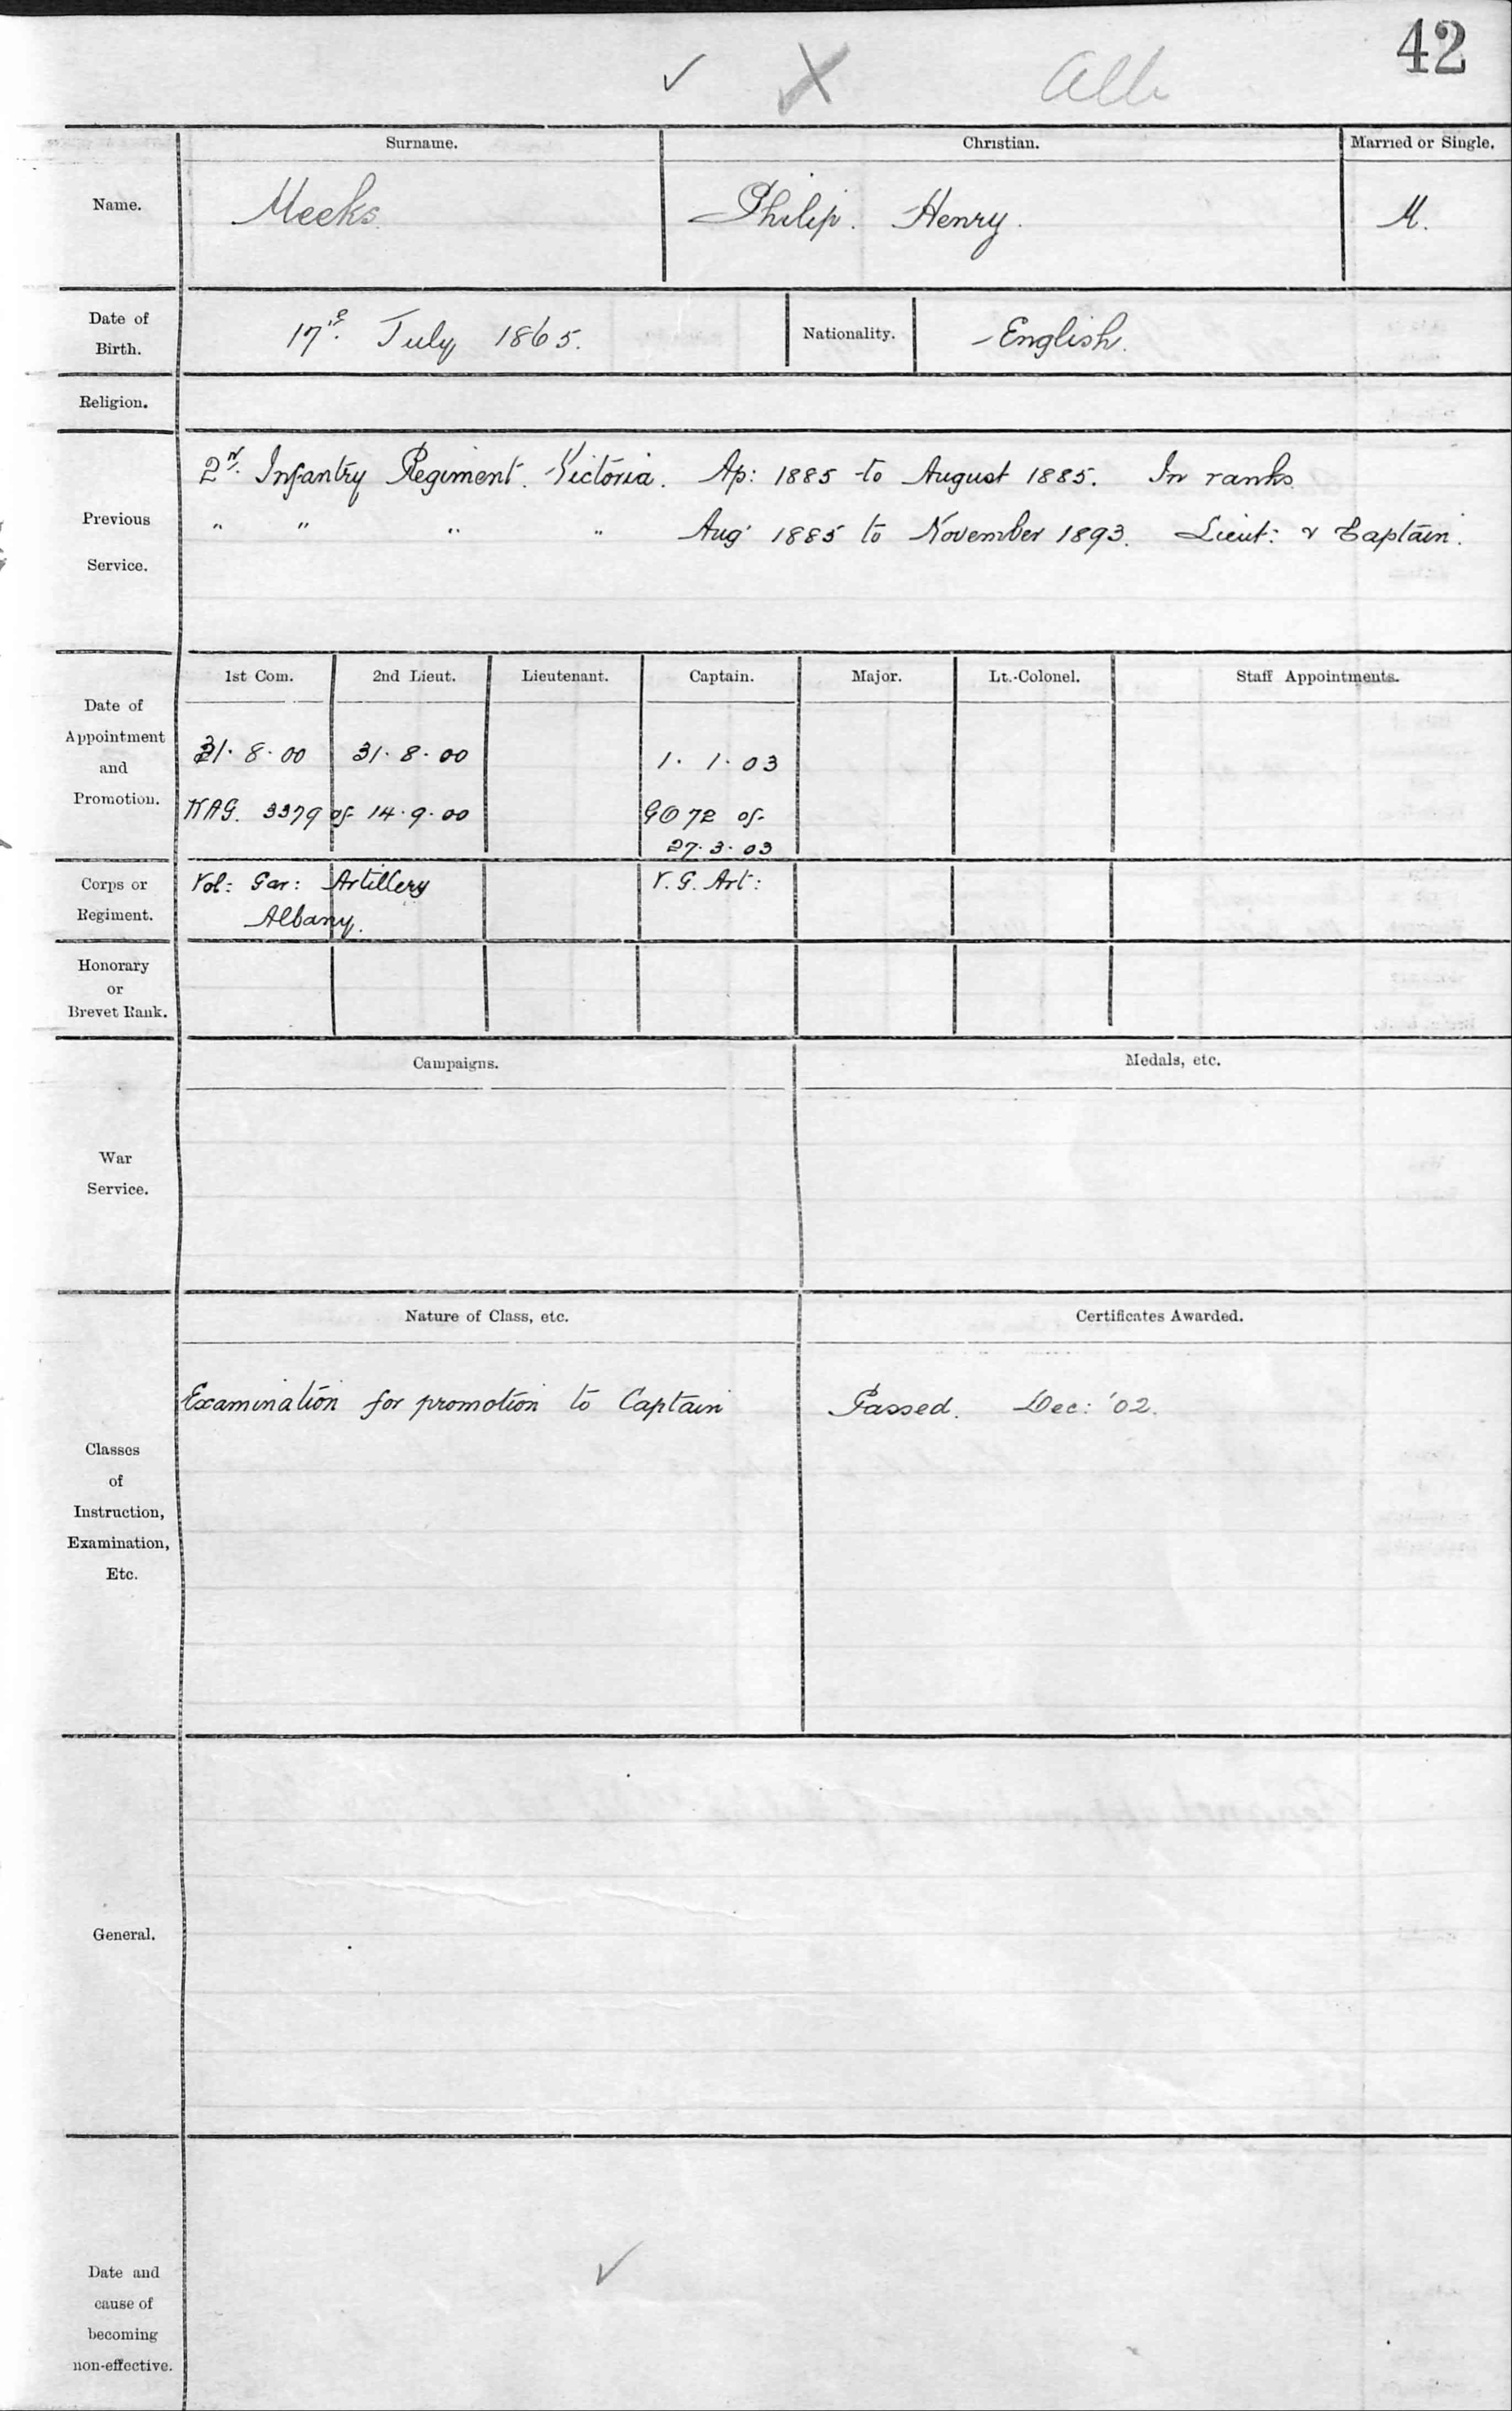 42
Alb
Surname. Christian. Married or Single.
Name. Meeks. Philip. Henry. M.
Date of
Birth. 17th. July 1865. Nationality. English.
Religion.
2nd. Infantry Regiment. Victoria. Ap: 1885 to August 1885. In ranks.
Previous
Service.
" " " " Aug. 1885 to November 1893. Lieut: & Captain.
1st Com. 2nd Lieut. Lieutenant. Captain. Major. Lt.-Colonel. Staff Appointments.
Date of
Appointment
and
Promotion.
31. 8. 00 31. 8. 00 1. 1. 03
WAG. 3379 of 14.9.00 GO 72 of
27.3.03
Corps or
Regiment.
Vol: Gar: Artillery V. G. Art:
Albany.
Honorary
or
Brevet Rank.
Campaigns. Medals, etc.
War
Service.
Nature of Class, etc. Certificates Awarded.
Examination for promotion to Captain Passed. Dec: '02.
Classes
of
Instruction,
Examination,
Etc.
General.
Date and
cause of
becoming
non-effective.